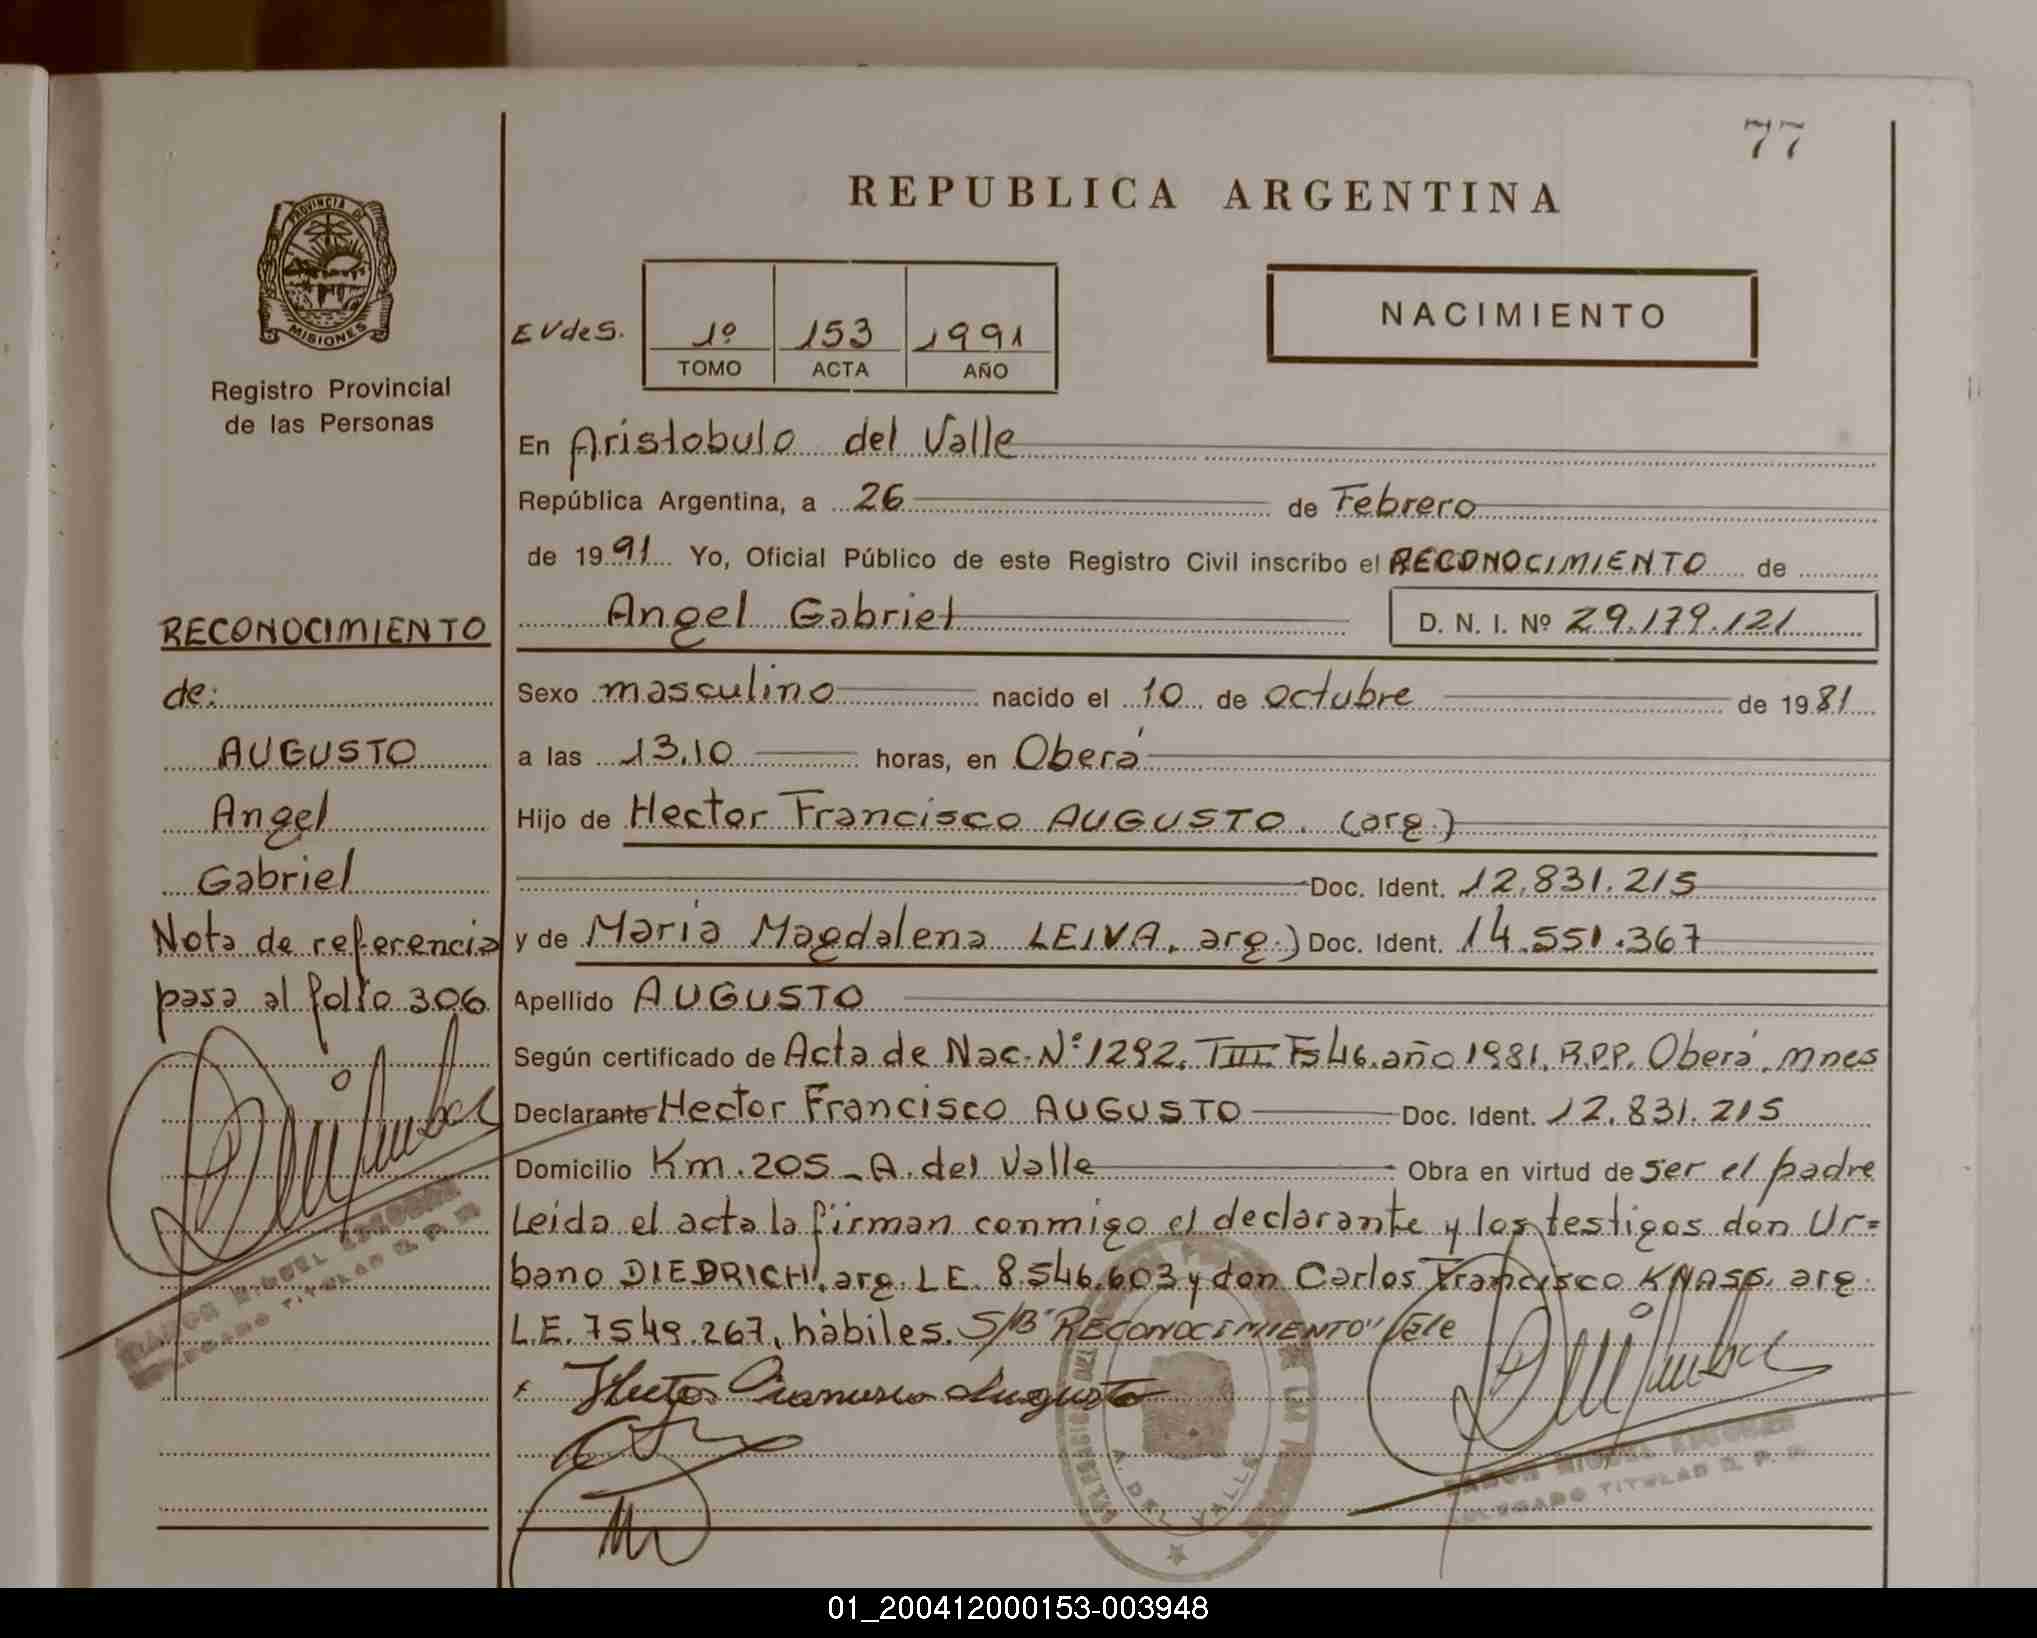 77
REPUBLICA ARGENTINA
PROVINCIA DE
MISIONES
Registro Provincial
de las Personas
EVdeS. 1º 153 1991
TOMO ACTA AÑO
NACIMIENTO
En Aristobulo del Valle
República Argentina, a 26 de Febrero
de 1991 Yo, Oficial Público de este Registro Civil inscribo el RECONOCIMIENTO de
Angel Gabriel D. N. I. Nº 29.179.121
Sexo masculino nacido el 10 de octubre de 1981
a las 13.10 horas, en Oberá
Hijo de Hector Francisco AUGUSTO. (arg.)
Doc. Ident. 12.831.215
y de Maria Magdalena LEIVA, arg.) Doc. Ident. 14.551.367
Apellido AUGUSTO
Según certificado de Acta de Nac. Nº 1292. TIII. Fs 46. año 1981. R.P.P. Oberá. Mnes
Declarante Hector Francisco AUGUSTO Doc. Ident. 12.831.215
Domicilio Km. 205 - A. del Valle Obra en virtud de ser el padre
Leida el acta la firman conmigo el declarante y los testigos don Ur=
bano DIEDRICH, arg. L.E. 8.546.603 y don Carlos Francisco KNASS. arg.
L.E. 7549.267, hàbiles. S/B "RECONOCIMIENTO" Vale
Hector Francisco Augusto
RECONOCIMIENTO
de:
AUGUSTO
Angel
Gabriel
Nota de referencia
pasa al folio 306
RAMON MIGUEL
DELEGADO TITULAR R. P. P.
A. DEL VALLE
RAMON MIGUEL
DELEGADO TITULAR R. P. P.
01_200412000153-003948